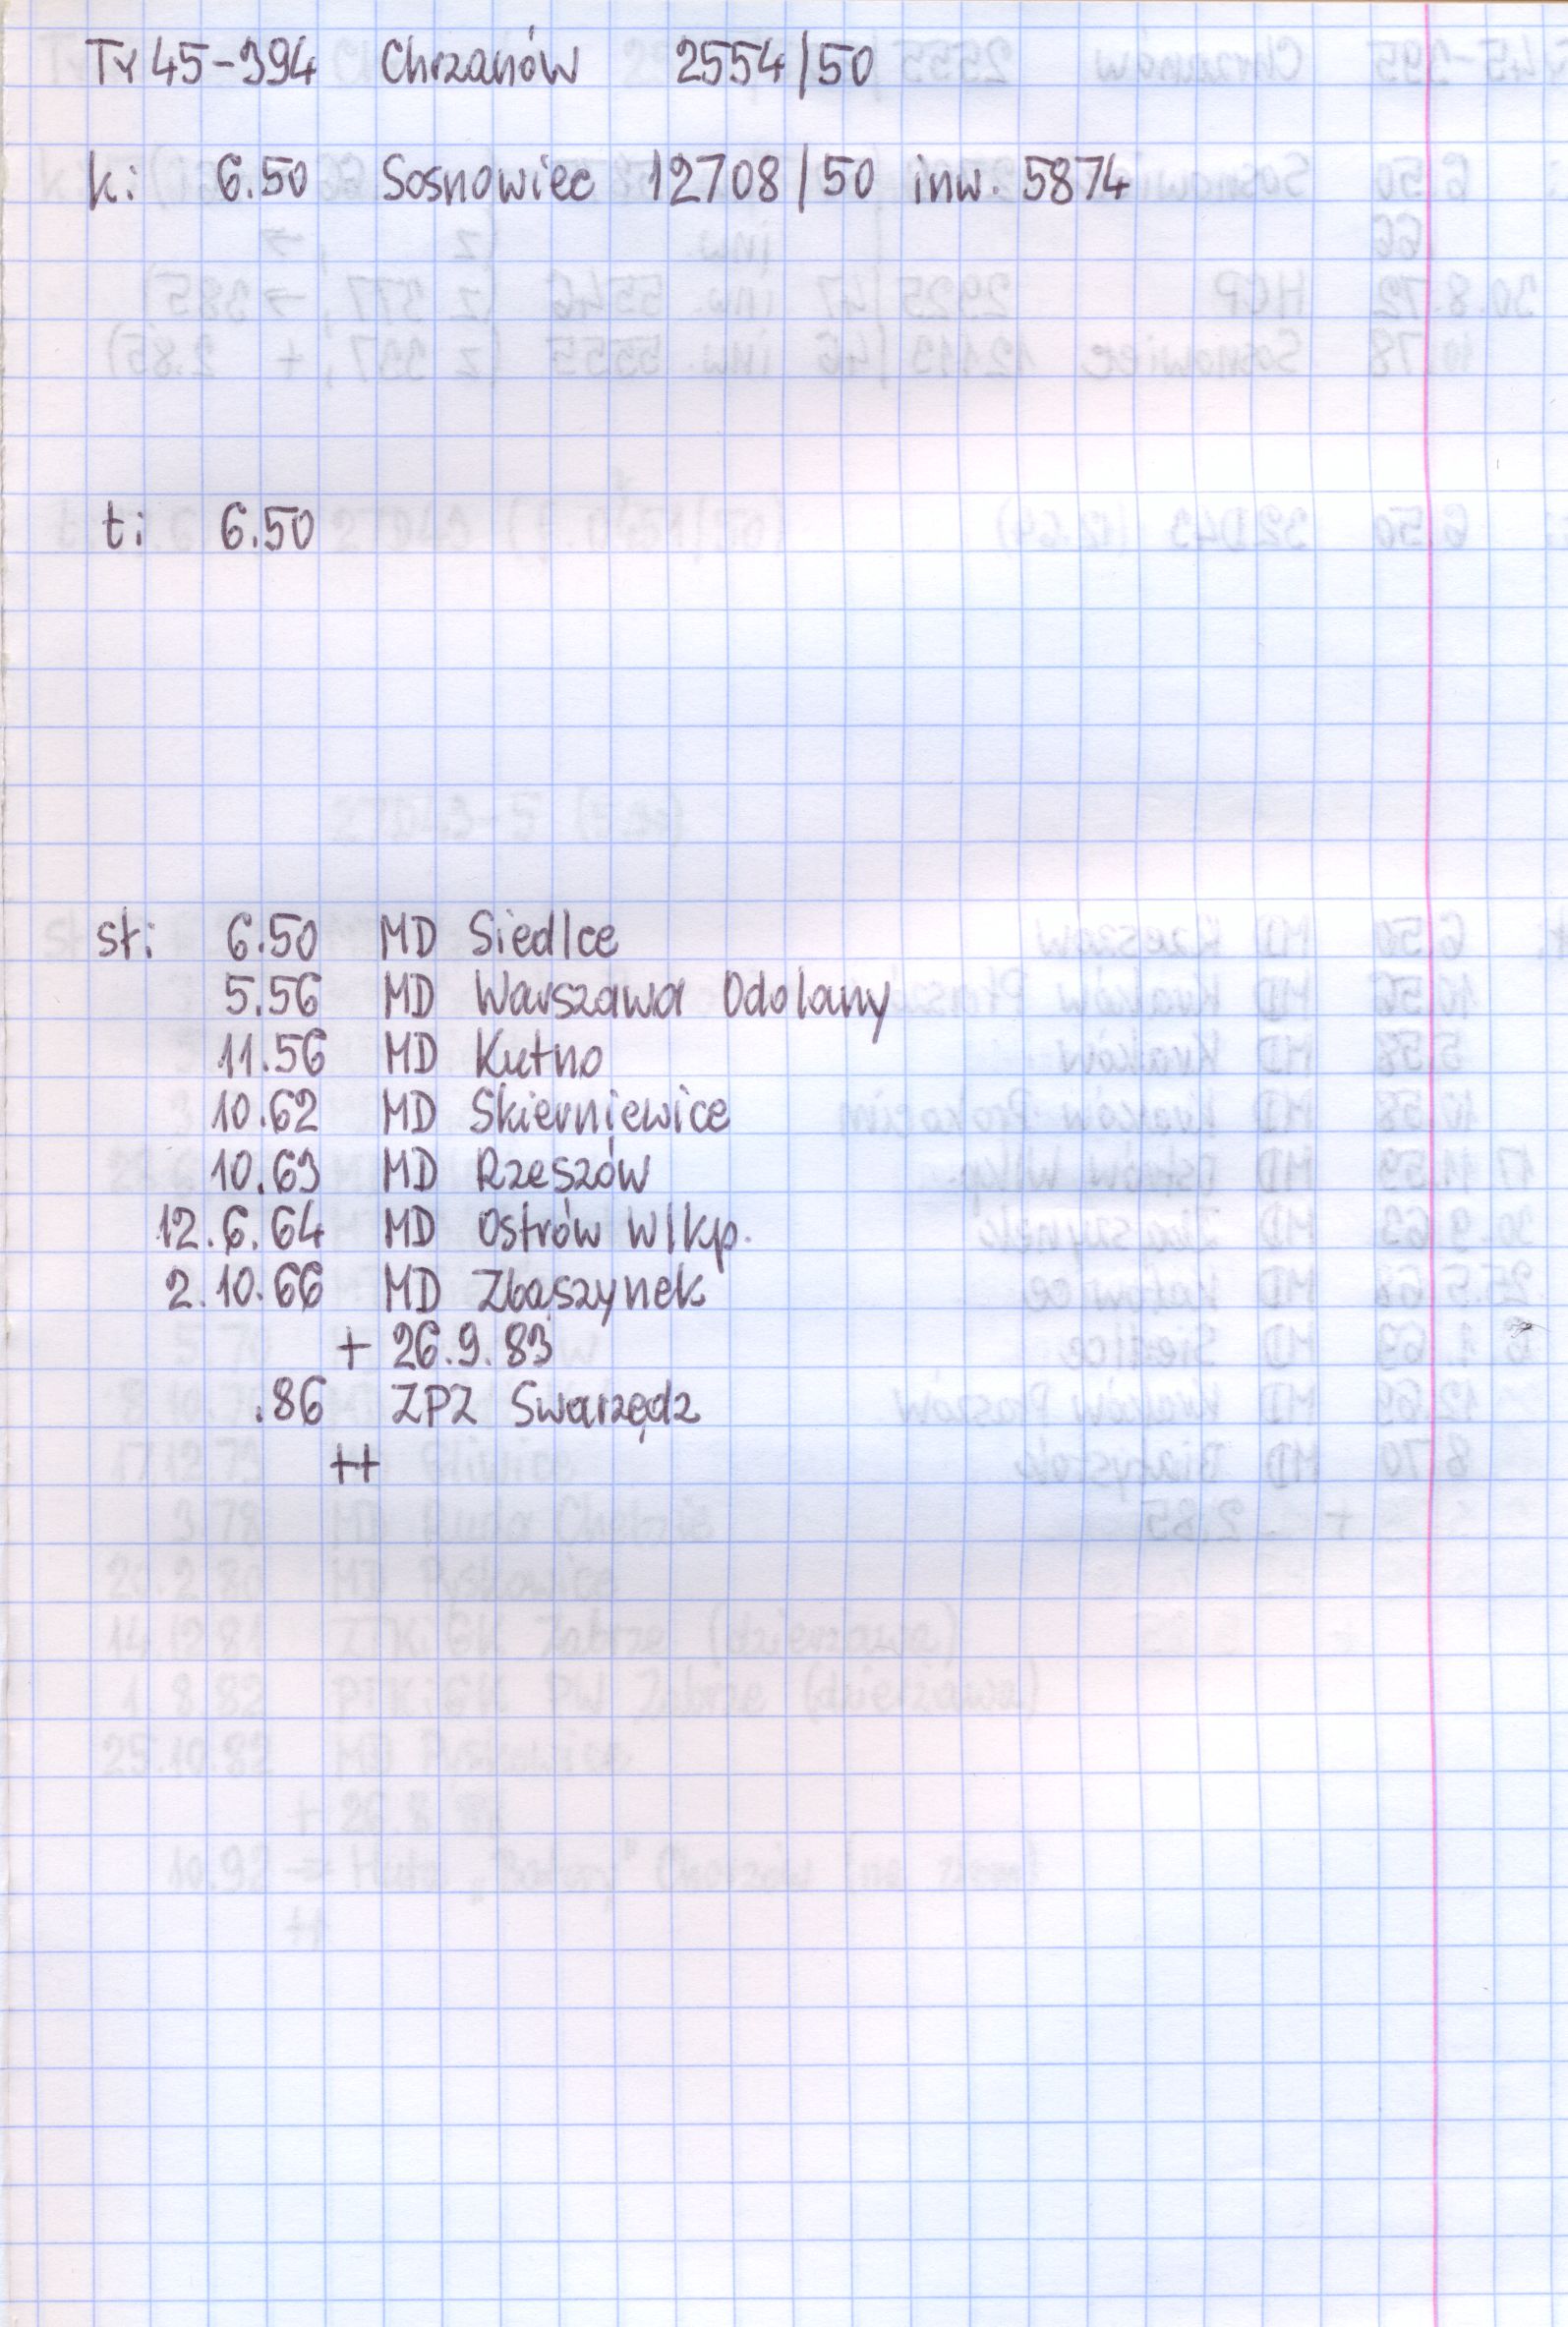 Ty45-394 Chrzanów 2554/50
k: 6.50 Sosnowiec 12708/50 inw. 5874
t: 6.50
st: 6.50 MD Siedlce
5.56 MD Warszawa Odolany
11.56 MD Kutno
10.62 MD Skierniewice
10.63 MD Rzeszów
12.6.64 MD Ostrów Wlkp.
2.10.66 MD Zbąszynek
+ 26.9.83
.86 ZPZ Swarzędz
++